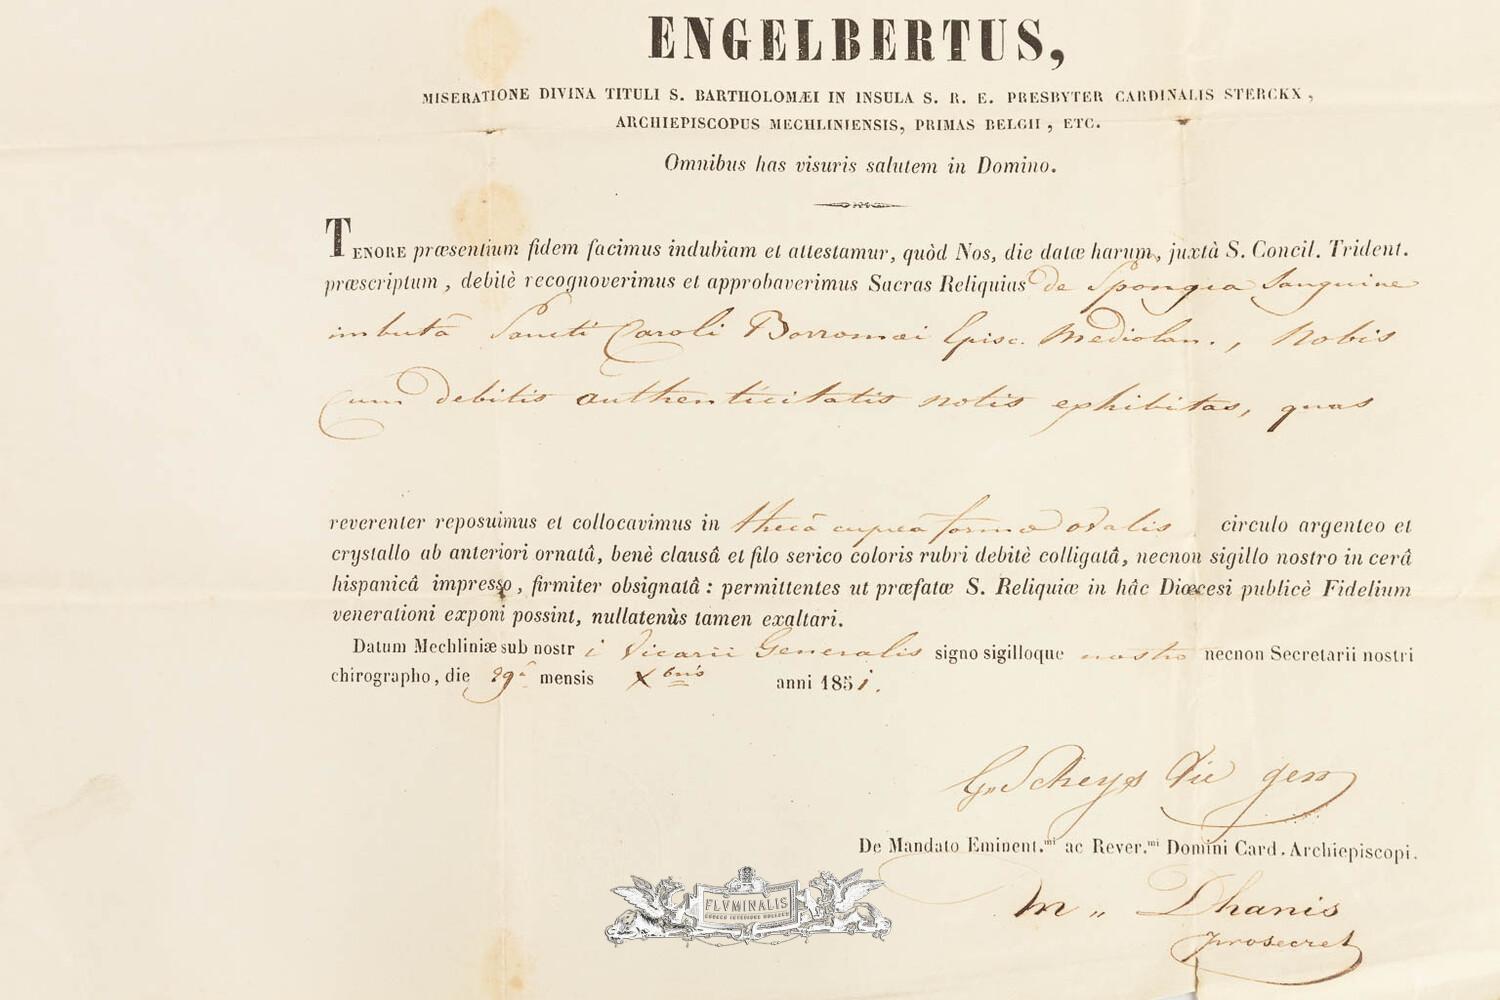 ENGELBERTUS,
MISERATIONE DIVINA TITULI S. BARTHOLOMÆI IN INSULA S. R. E. PRESBYTER CARDINALIS STERCKX,
ARCHIEPISCOPUS MECHLINIENSIS, PRIMAS BELGII, ETC.
Omnibus has visuris salutem in Domino.
TENORE præsentium fidem facimus indubiam et attestamur, quòd Nos, die datæ harum, juxtà S. Concil. Trident.
præscriptum, debitè recognoverimus et approbaverimus Sacras Reliquias de Spongia Sanguine
imbutâ Sancti Caroli Borromæi Episc. Mediolan., Nobis
Cum debitis authenticitatis notis exhibitas, quas
reverenter reposuimus et collocavimus in thecâ cupreâ formæ ovalis circulo argenteo et
crystallo ab anteriori ornatâ, benè clausâ et filo serico coloris rubri debitè colligatâ, necnon sigillo nostro in cerâ
hispanicâ impresso, firmiter obsignatâ : permittentes ut præfatæ S. Reliquiæ in hâc Diœcesi publicè Fidelium
venerationi exponi possint, nullatenùs tamen exaltari.
Datum Mechliniæ sub nostr i Vicarii Generalis signo sigilloque nostro necnon Secretarii nostri
chirographo, die 29â mensis Xbris anni 1851.
G. Scheys Vic gen
De Mandato Eminent.mi ac Rever.mi Domini Card. Archiepiscopi.
m „ Dhanis
prosecret
FLVMINALIS